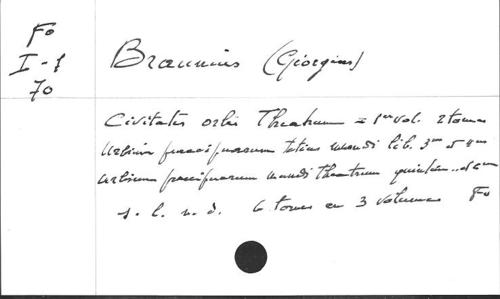 Fo
I-1
70
Braunius (Giorgius)
Civitates orbis Theatrum = 1er vol. 2 tomes
Urbium praecipuarum totius mundi lib. 3us et 4us
Urbium praecipuarum mundi theatrum quintum
s. l. n. d. 6 tomes en 3 volumes Fo